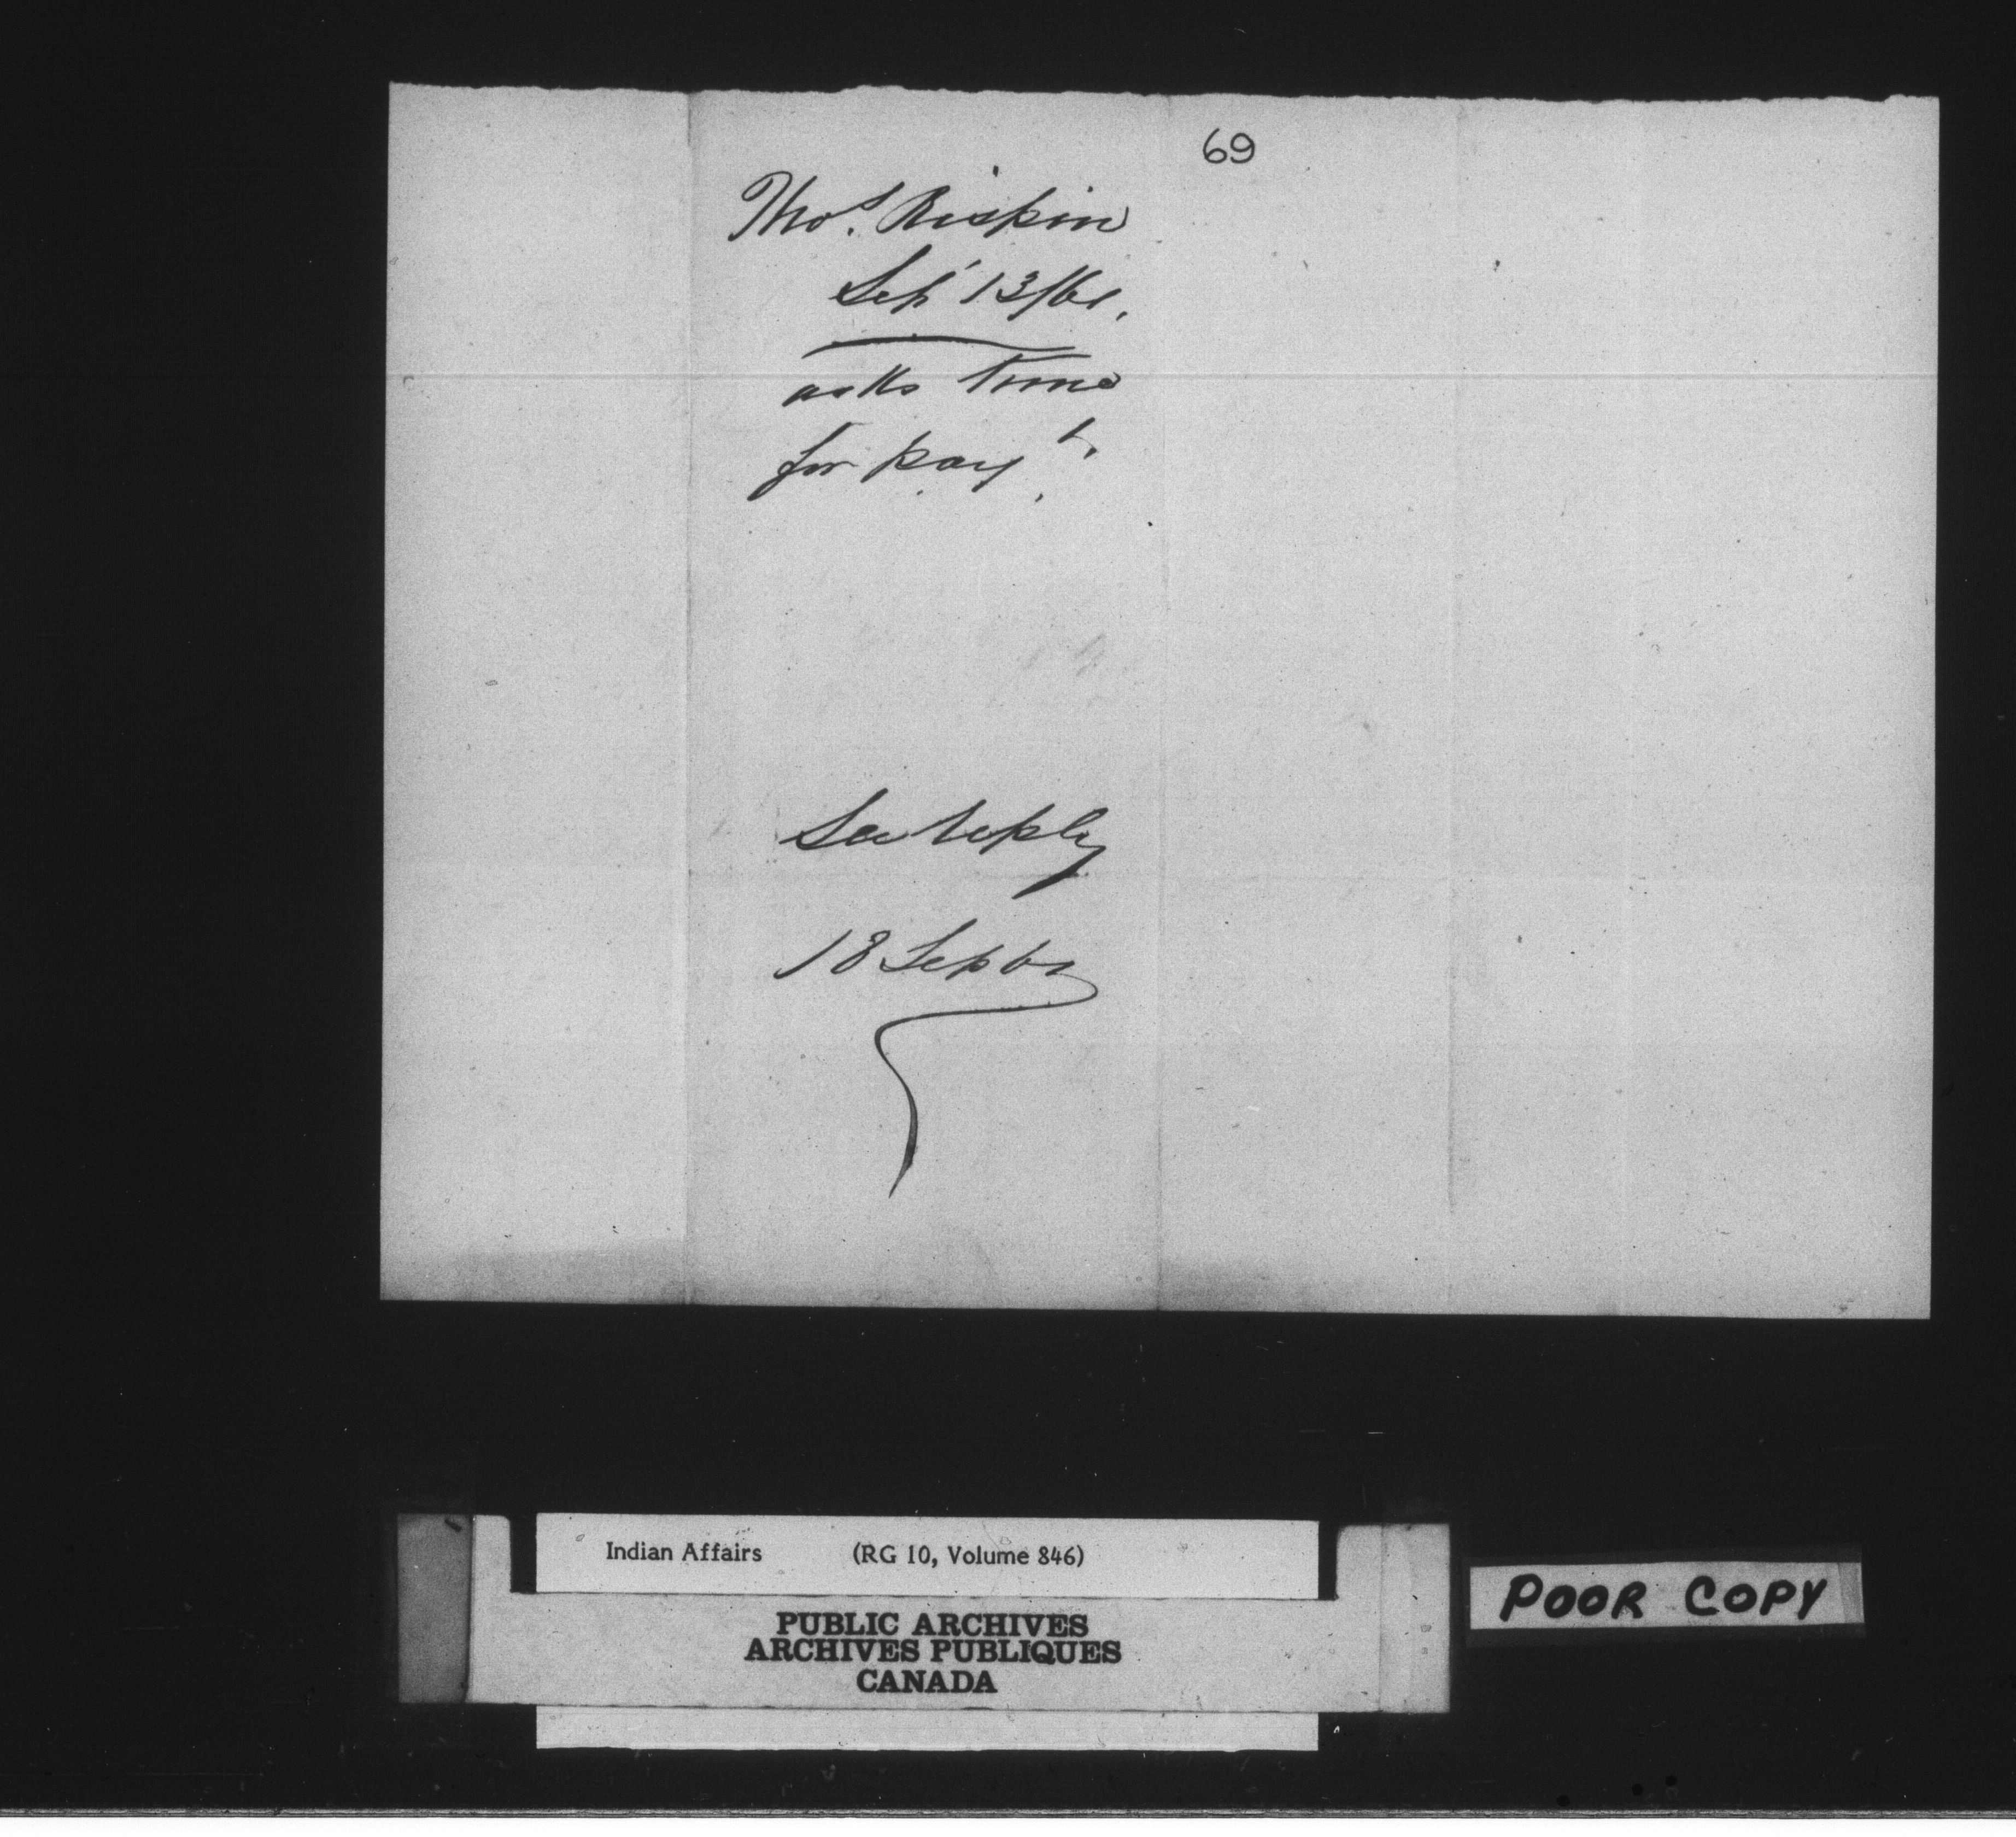 69
Thos. Riskin
Sept 13/61.
asks time
for payt.
See reply
18 Sept 61
Indian Affairs (RG 10, Volume 846)
PUBLIC ARCHIVES
ARCHIVES PUBLIQUES
CANADA
POOR COPY